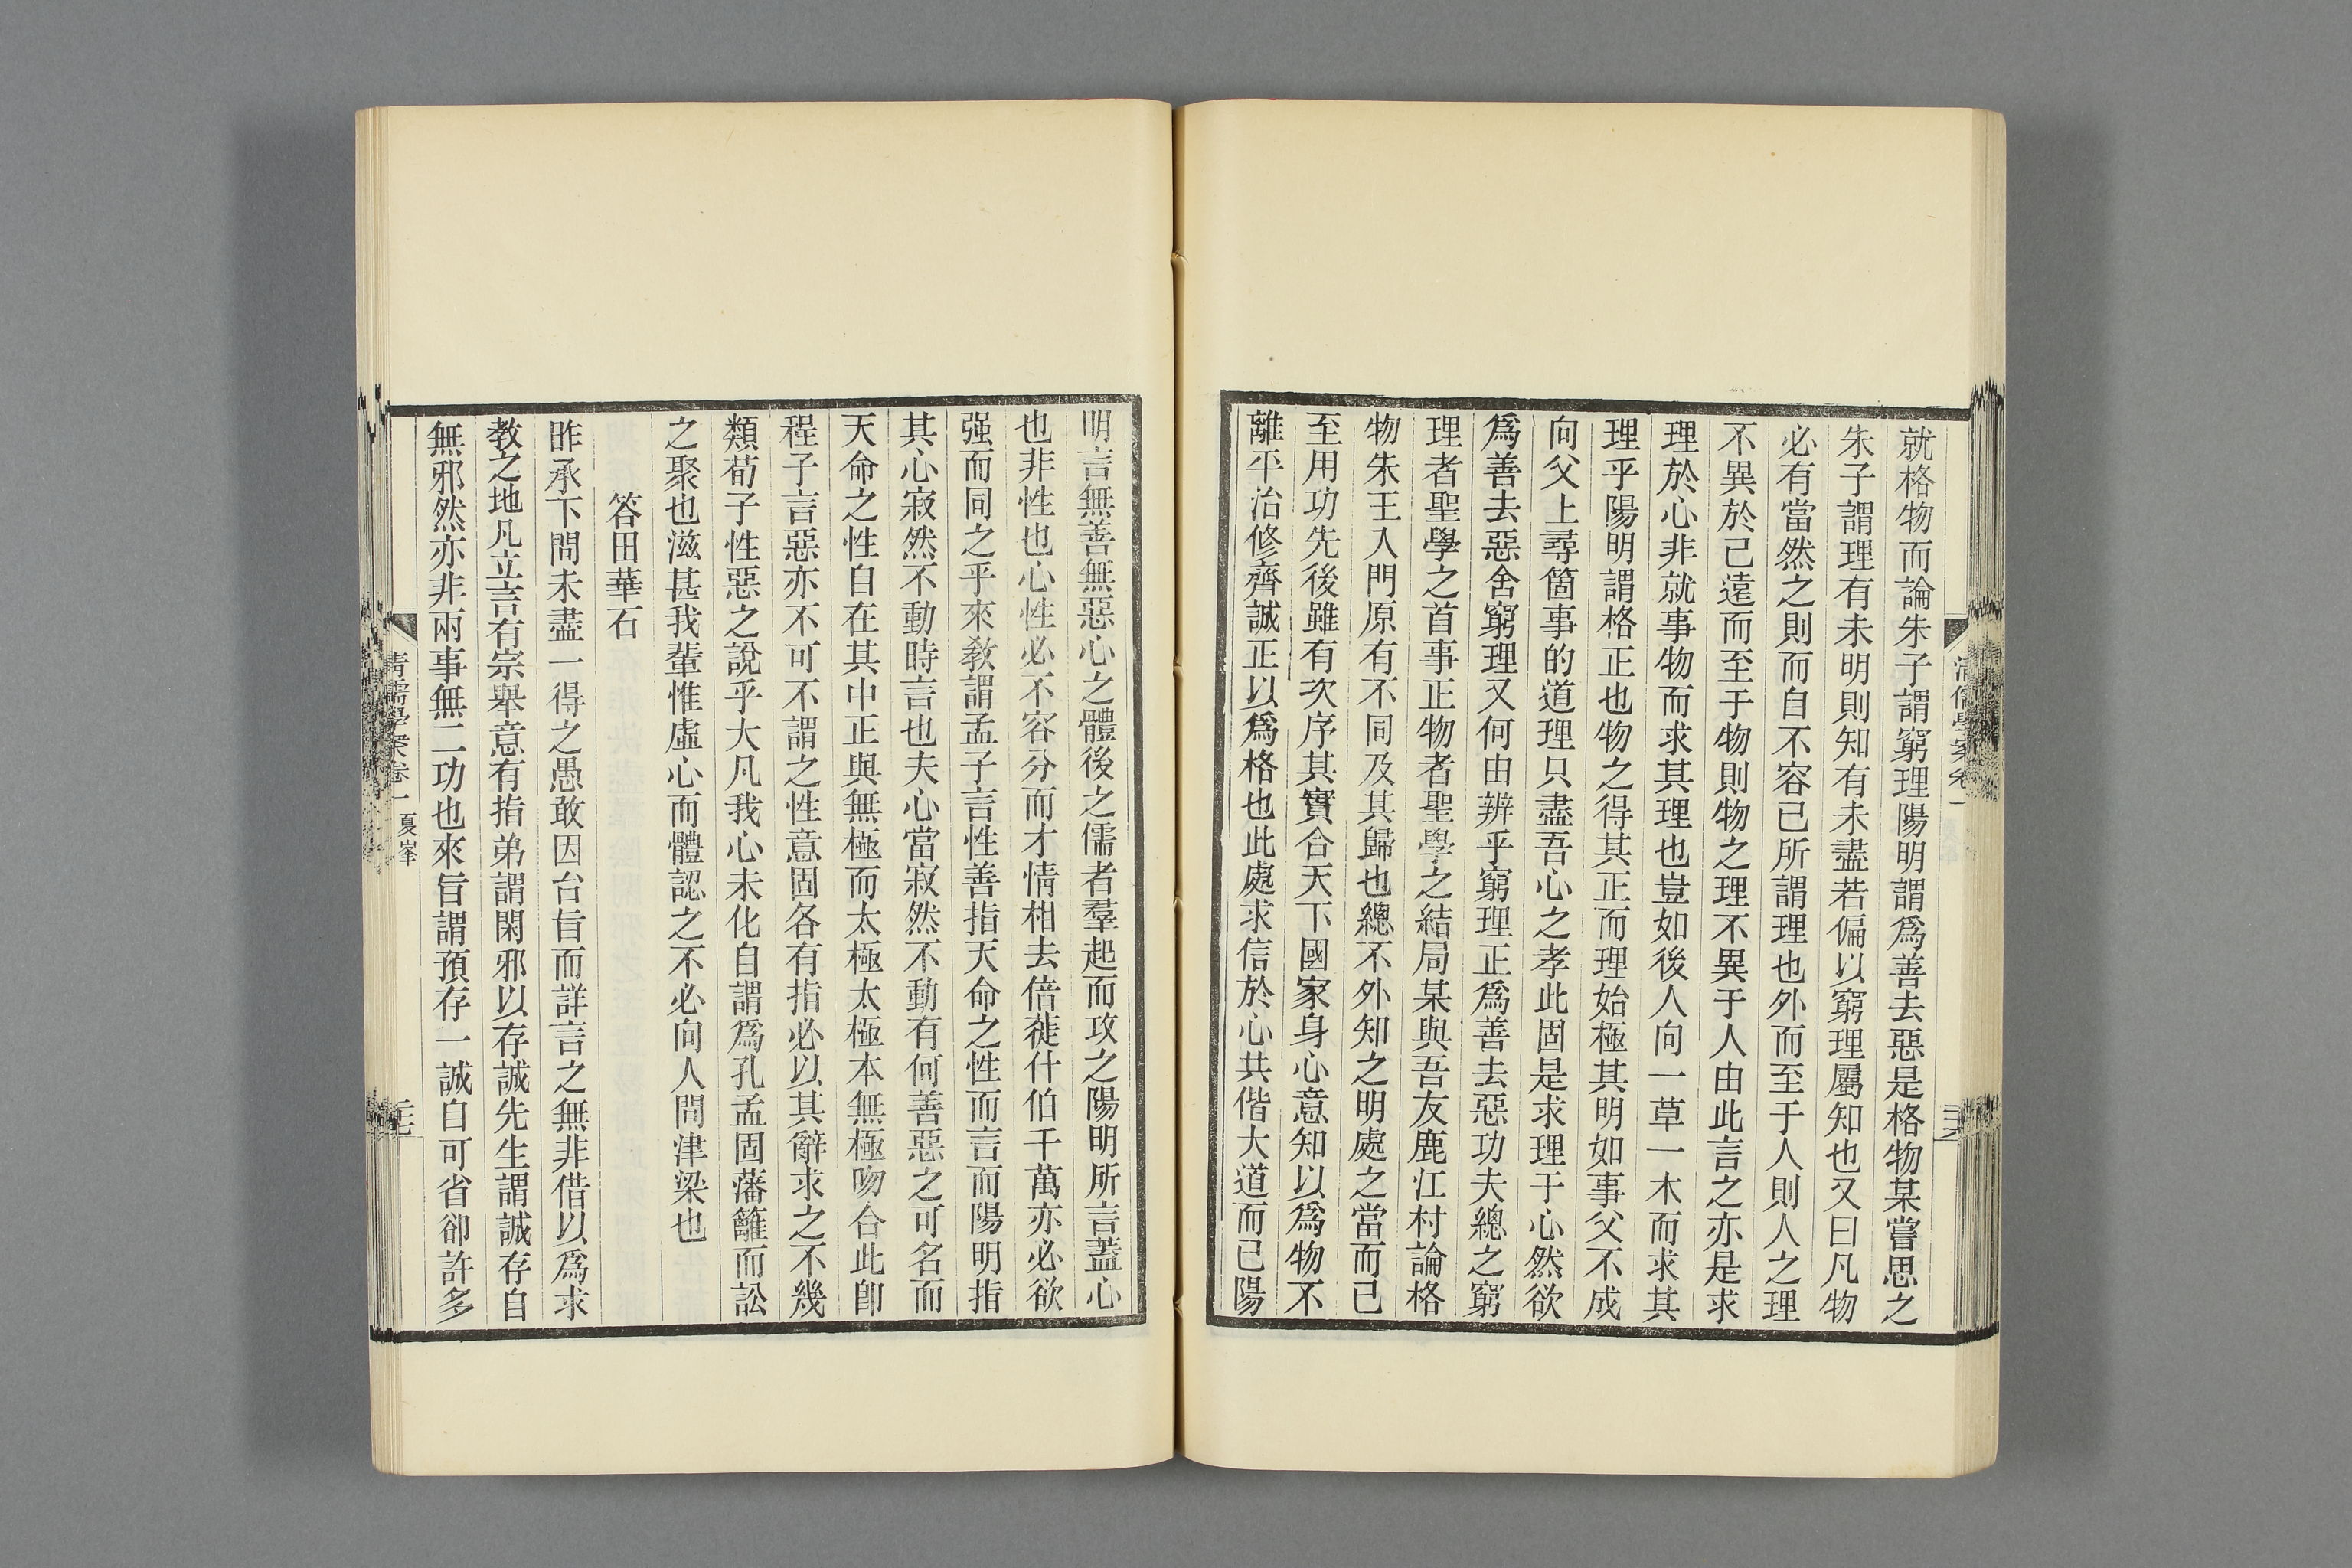 就格物而論朱子謂窮理陽明謂爲善去惡是格物某嘗思之
朱子謂理有未明則知有未盡若偏以窮理屬知也又曰凡物
必有當然之則而自不容已所謂理也外而至于人則人之理
不異於己遠而至于物則物之理不異于人由此言之亦是求
理於心非就事物而求其理也豈如後人向一草一木而求其
理乎陽明謂格正也物之得其正而理始極其明如事父不成
向父上尋箇事的道理只盡吾心之孝此固是求理于心然欲
爲善去惡舍窮理又何由辨乎窮理正爲善去惡功夫總之窮
理者聖學之首事正物者聖學之結局某與吾友鹿江村論格
物朱王入門原有不同及其歸也總不外知之明處之當而已
至用功先後雖有次序其實合天下國家身心意知以爲物不
離平治修齊誠正以爲格也此處求信於心共偕大道而已陽
明言無善無惡心之體後之儒者羣起而攻之陽明所言蓋心
也非性也心性必不容分而才情相去倍蓰什伯千萬亦必欲
强而同之乎來敎謂孟子言性善指天命之性而言而陽明指
其心寂然不動時言也夫心當寂然不動有何善惡之可名而
天命之性自在其中正與無極而太極太極本無極吻合此卽
程子言惡亦不可不謂之性意固各有指必以其辭求之不幾
類荀子性惡之說乎大凡我心未化自謂爲孔孟固藩籬而訟
之聚也滋甚我輩惟虛心而體認之不必向人問津梁也
答田華石
昨承下問未盡一得之愚敢因台旨而詳言之無非借以爲求
教之地凡立言有宗舉意有指弟謂閑邪以存誠先生謂誠存自
無邪然亦非兩事無二功也來旨謂預存一誠自可省卻許多
清儒學案卷一 夏峯